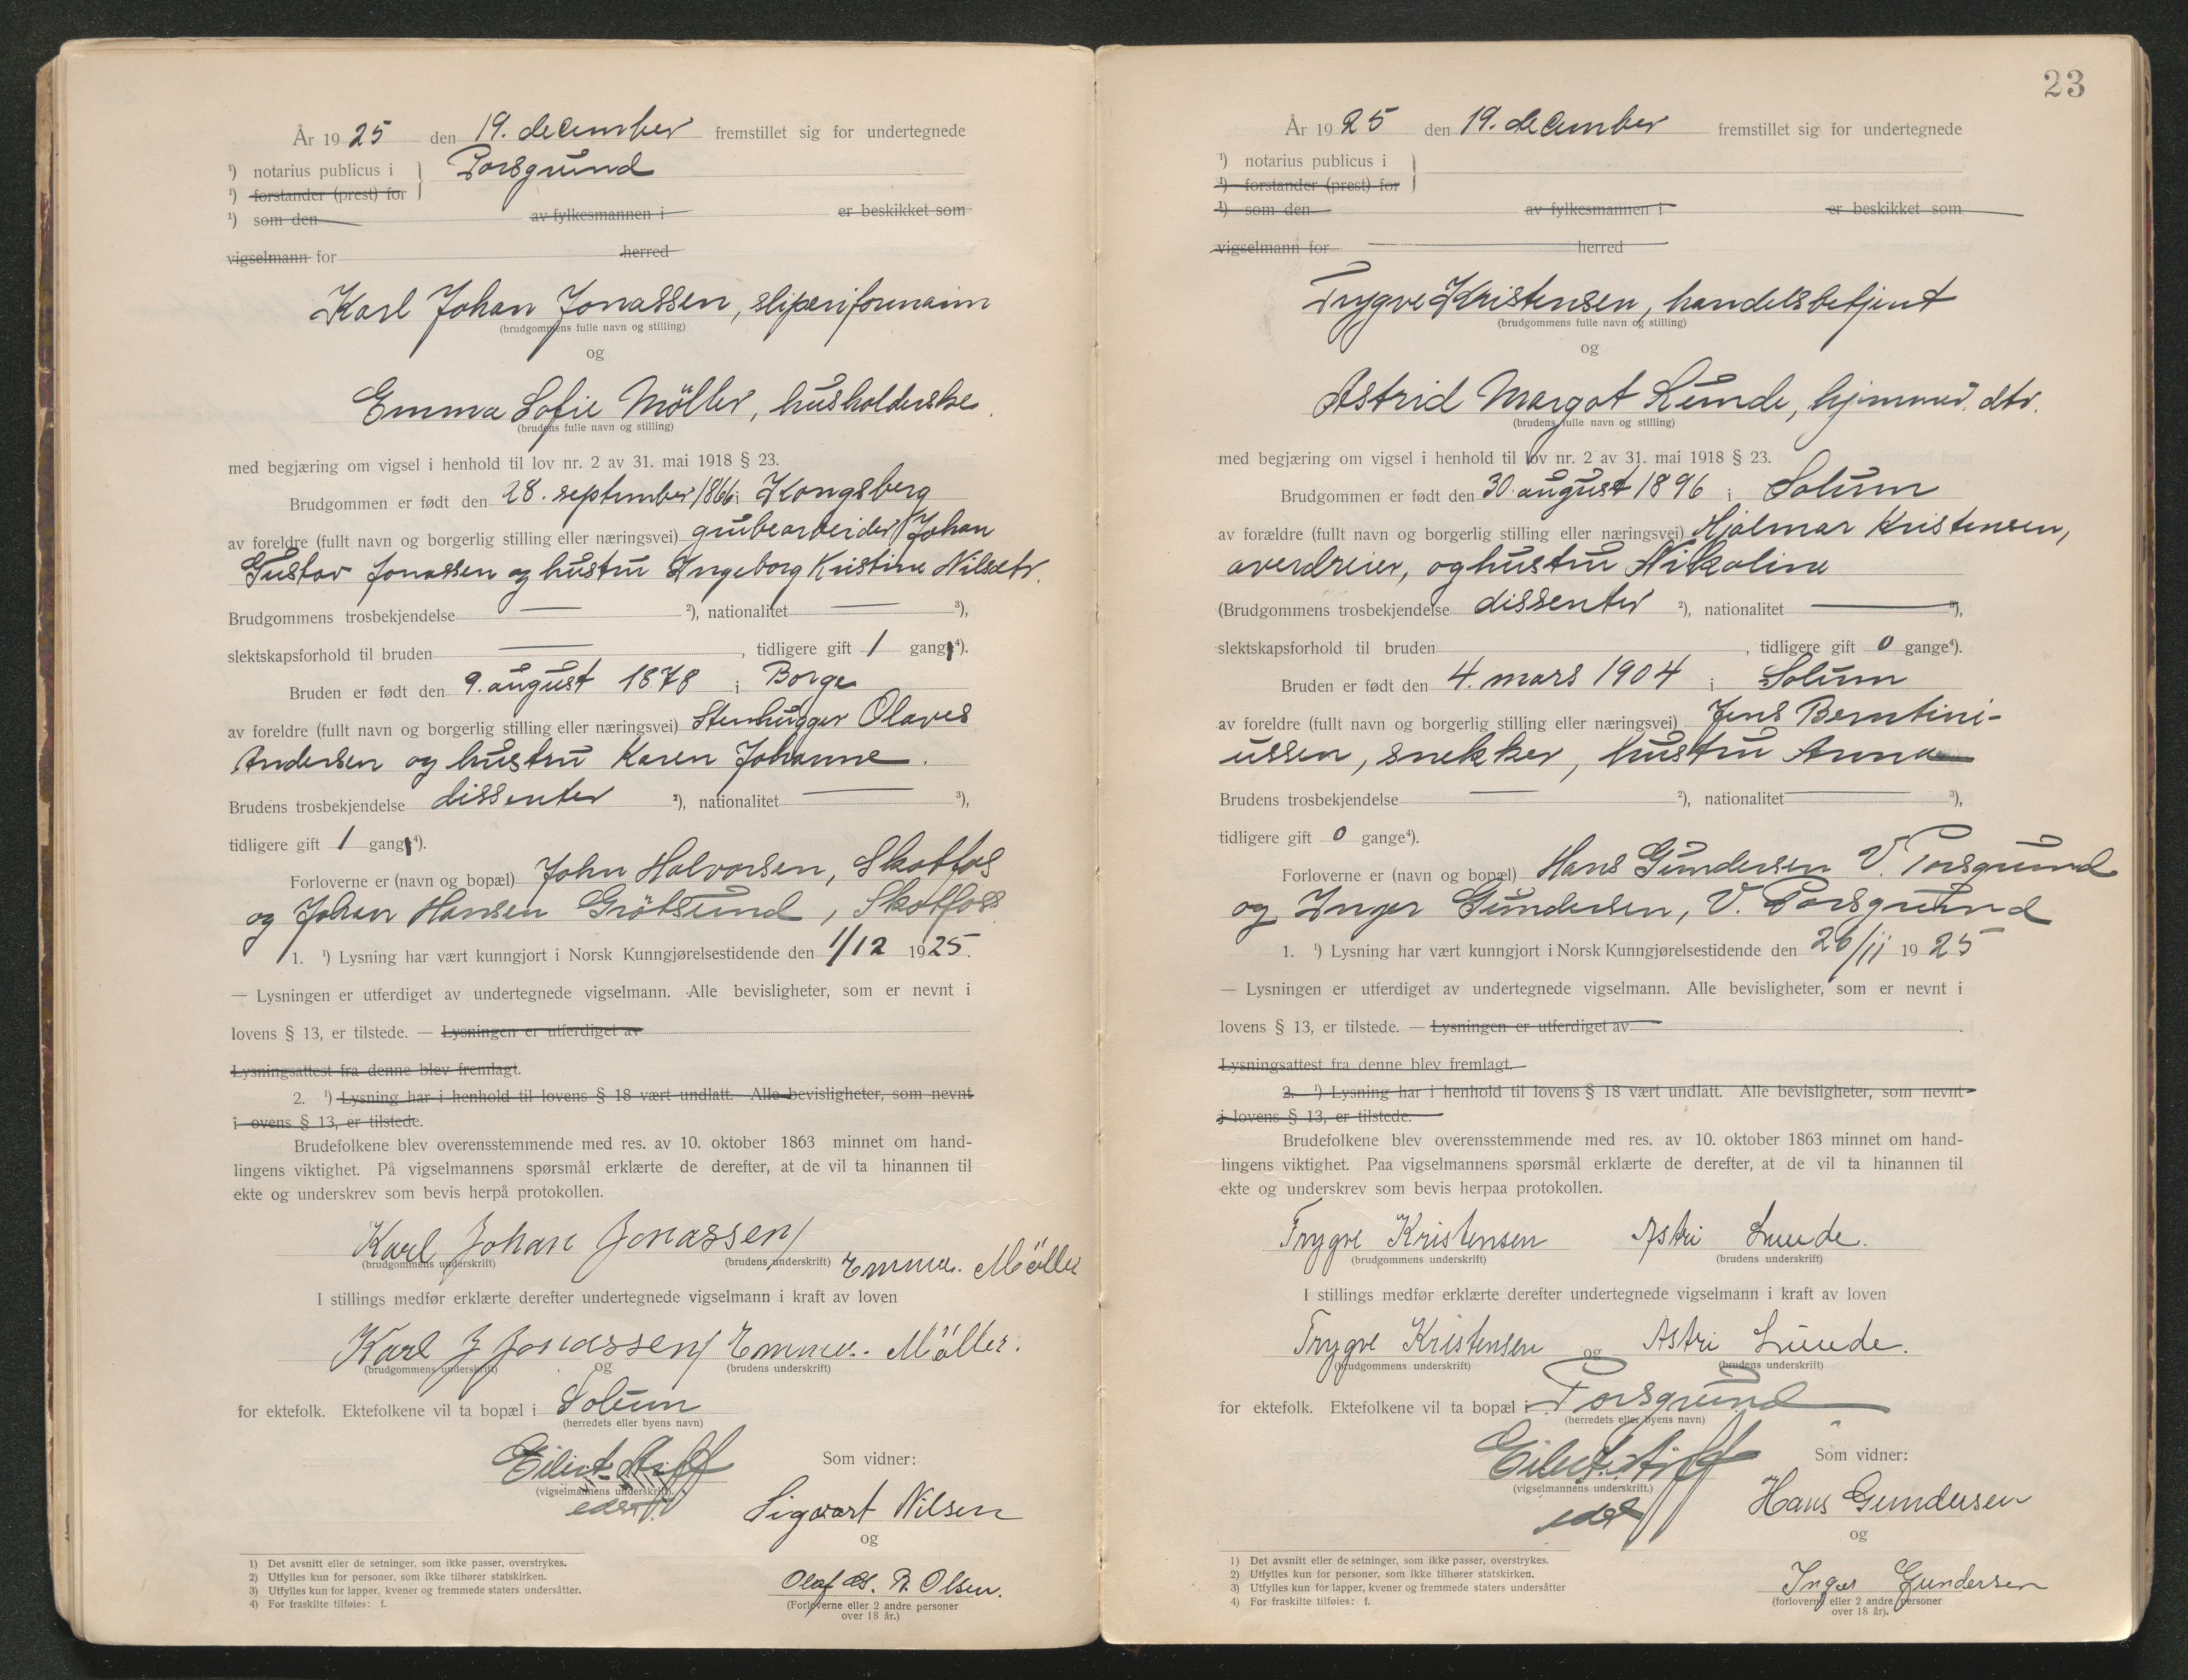 År 1925 den 19. december fremstillet sig for undertegnede
¹) notarius publicus i } Porsgrund
¹) forstander (prest) for
¹) som den av fylkesmannen i er beskikket som
vigselmann for herred
Karl Johan Jonassen, sliperiformann
(brudgommens fulle navn og stilling)
og
Emma Sofie Möller, husholderske.
(brudens fulle navn og stilling)
med begjæring om vigsel i henhold til lov nr. 2 av 31. mai 1918 § 23.
Brudgommen er født den 28. september 1866 i Kongsberg
av foreldre (fullt navn og borgerlig stilling eller næringsvei) grubearbeider Johan
Gustav Jonassen og hustru Ingeborg Kristine Nilsdtr.
Brudgommens trosbekjendelse — ²), nationalitet — ³),
slektskapsforhold til bruden — , tidligere gift 1 gang ⁴).
Bruden er født den 9. august 1878 i Borge
av foreldre (fullt navn og borgerlig stilling eller næringsvei) Stenhugger Olaves
Andersen og hustru Karen Johanne.
Brudens trosbekjendelse dissenter ²), nationalitet — ³),
tidligere gift 1 gang ⁴).
Forloverne er (navn og bopæl) John Halvorsen, Skotfos
og Johan Hansen Grötsund, Skotfoss
1. ¹) Lysning har vært kunngjort i Norsk Kunngjørelsestidende den 1/12 1925.
— Lysningen er utferdiget av undertegnede vigselmann. Alle bevisligheter, som er nevnt i
lovens § 13, er tilstede. — Lysningen er utferdiget av
Lysningsattest fra denne blev fremlagt.
2. ¹) Lysning har i henhold til lovens § 18 vært undlatt. Alle bevisligheter, som nevnt
i ovens § 13, er tilstede.
Brudefolkene blev overensstemmende med res. av 10. oktober 1863 minnet om hand-
lingens viktighet. På vigselmannens spørsmål erklærte de derefter, at de vil ta hinannen til
ekte og underskrev som bevis herpå protokollen.
Karl Johan Jonassen Emma Möller
(brudgommens underskrift) (brudens underskrift)
I stillings medfør erklærte derefter undertegnede vigselmann i kraft av loven
Karl J Jonassen Emma Möller.
(brudgommens underskrift) og (brudens underskrift)
for ektefolk. Ektefolkene vil ta bopæl i Solum
(herredets eller byens navn)
Som vidner:
(vigselmannens underskrift.)
Sigvart Nilsen
og
Olaf Olsen.
(Forloverne eller 2 andre personer
over 18 år.)
1) Det avsnitt eller de setninger, som ikke passer, overstrykes.
2) Utfylles kun for personer, som ikke tilhører statskirken.
3) Utfylles kun for lapper, kvener og fremmede staters undersåtter.
4) For fraskilte tilføies: f.
23
År 1925 den 19. december fremstillet sig for undertegnede
¹) notarius publicus i }
¹) forstander (prest) for
¹) som den av fylkesmannen i er beskikket som
vigselmann for herred
Trygve Kristensen, handelsbetjent
(brudgommens fulle navn og stilling)
og
Astrid Margot Lunde, hjemmev. dtr.
(brudens fulle navn og stilling)
med begjæring om vigsel i henhold til lov nr. 2 av 31. mai 1918 § 23.
Brudgommen er født den 30. august 1896 i Solum
av forældre (fullt navn og borgerlig stilling eller næringsvei) Hjalmar Kristensen,
overdreier, og hustru Nikoline
(Brudgommens trosbekjendelse dissenter ²), nationalitet — ³),
slektskapsforhold til bruden , tidligere gift 0 gange⁴).
Bruden er født den 4. mars 1904 i Solum
av foreldre (fullt navn og borgerlig stilling eller næringsvei) Jens Berntini-
ussen, snekker, hustru Anna
Brudens trosbekjendelse — ²), nationalitet — ³),
tidligere gift 0 gange⁴).
Forloverne er (navn og bopæl) Hans Gundersen V. Porsgrund
og Inger Gundersen, V. Porsgrund
1. ¹) Lysning har vært kunngjort i Norsk Kunngjørelsestidende den 26/11 1925
— Lysningen er utferdiget av undertegnede vigselmann. Alle bevisligheter, som er nevnt i
lovens § 13, er tilstede. — Lysningen er utferdiget av
Lysningsattest fra denne blev fremlagt.
2. ¹) Lysning har i henhold til lovens § 18 vært undlatt. Alle bevisligheter, som nevnt
i lovens § 13, er tilstede.
Brudefolkene blev overensstemmende med res. av 10. oktober 1863 minnet om hand-
lingens viktighet. Paa vigselmannens spørsmål erklærte de derefter, at de vil ta hinannen til
ekte og underskrev som bevis herpaa protokollen.
Trygve Kristensen Astri Lunde.
(brudgommens underskrift) (brudens underskrift)
I stillings medfør erklærte derefter undertegnede vigselmann i kraft av loven
Trygve Kristensen og Astri Lunde.
(brudgommens underskrift) (brudens underskrift)
for ektefolk. Ektefolkene vil ta bopæl i Porsgrund
(herredets eller byens navn)
Som vidner:
(vigselmannens underskrift.)
Hans Gundersen
og
Inger Gundersen
(forloverne eller 2 andre personer
over 18 år).
1) Det avsnitt eller de setninger, som ikke passer, overstrykes.
2) Utfylles kun for personer, som ikke tilhører statskirken.
3) Utfylles kun for lapper, kvener og fremmede staters undersåtter
4) For fraskilte tilføies: f.